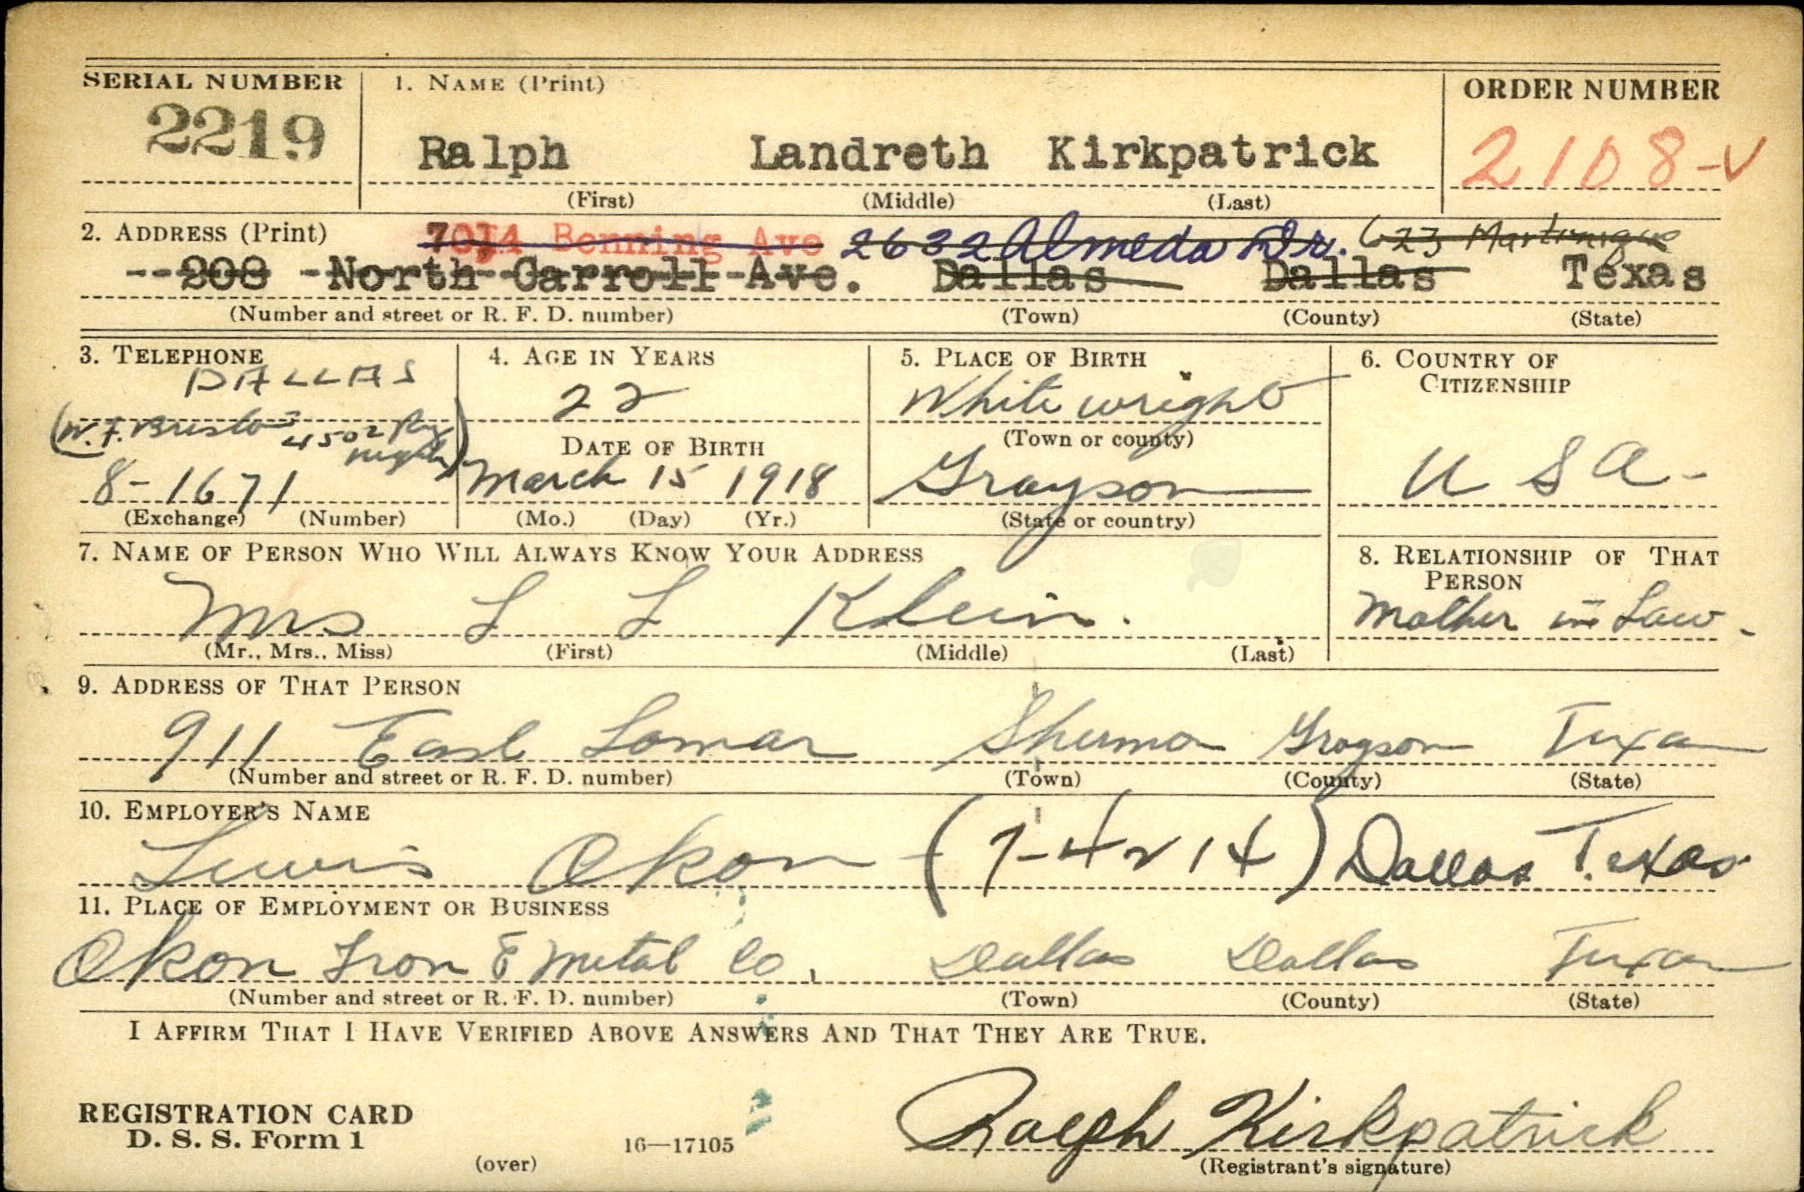 SERIAL NUMBER 1. NAME (Print) ORDER NUMBER
2219 Ralph Landreth Kirkpatrick 2108-V
(First) (Middle) (Last)
2. ADDRESS (Print) 7014 Benning Ave 2632 Almeda Dr. 623 Martinique
208 North Carroll Ave. Dallas Dallas Texas
(Number and street or R. F. D. number) (Town) (County) (State)
3. TELEPHONE 4. AGE IN YEARS 5. PLACE OF BIRTH 6. COUNTRY OF CITIZENSHIP
DALLAS 22 Whitewright
(W. F. Bristo 4502
(Town or county)
DATE OF BIRTH
8-1671 March 15 1918 Grayson U S A-
(Exchange) (Number) (Mo.) (Day) (Yr.) (State or country)
7. NAME OF PERSON WHO WILL ALWAYS KNOW YOUR ADDRESS 8. RELATIONSHIP OF THAT PERSON
Mrs L L Klein. Mother in Law-
(Mr., Mrs., Miss) (First) (Middle) (Last)
9. ADDRESS OF THAT PERSON
911 East Lamar Sherman Grayson Texas
(Number and street or R. F. D. number) (Town) (County) (State)
10. EMPLOYER'S NAME
Lewis Okon - (7-4214) Dallas Texas
11. PLACE OF EMPLOYMENT OR BUSINESS
Okon Iron & Metal Co. Dallas Dallas Texas
(Number and street or R. F. D. number) (Town) (County) (State)
I AFFIRM THAT I HAVE VERIFIED ABOVE ANSWERS AND THAT THEY ARE TRUE.
REGISTRATION CARD
D. S. S. Form 1 16—17105 Ralph Kirkpatrick
(over) (Registrant's signature)